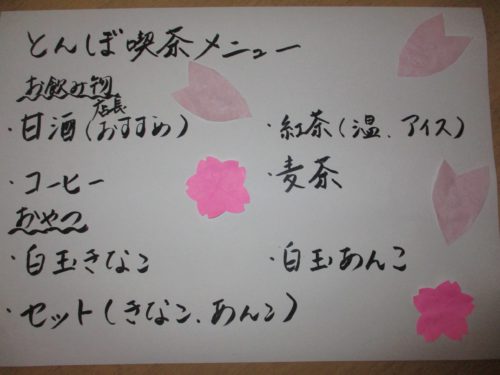 とんぼ喫茶メニュー
お飲み物
店長
・甘酒(おすすめ) ・紅茶(温、アイス)
・コーヒー ・麦茶
おやつ
・白玉きなこ ・白玉あんこ
・セット(きなこ、あんこ)